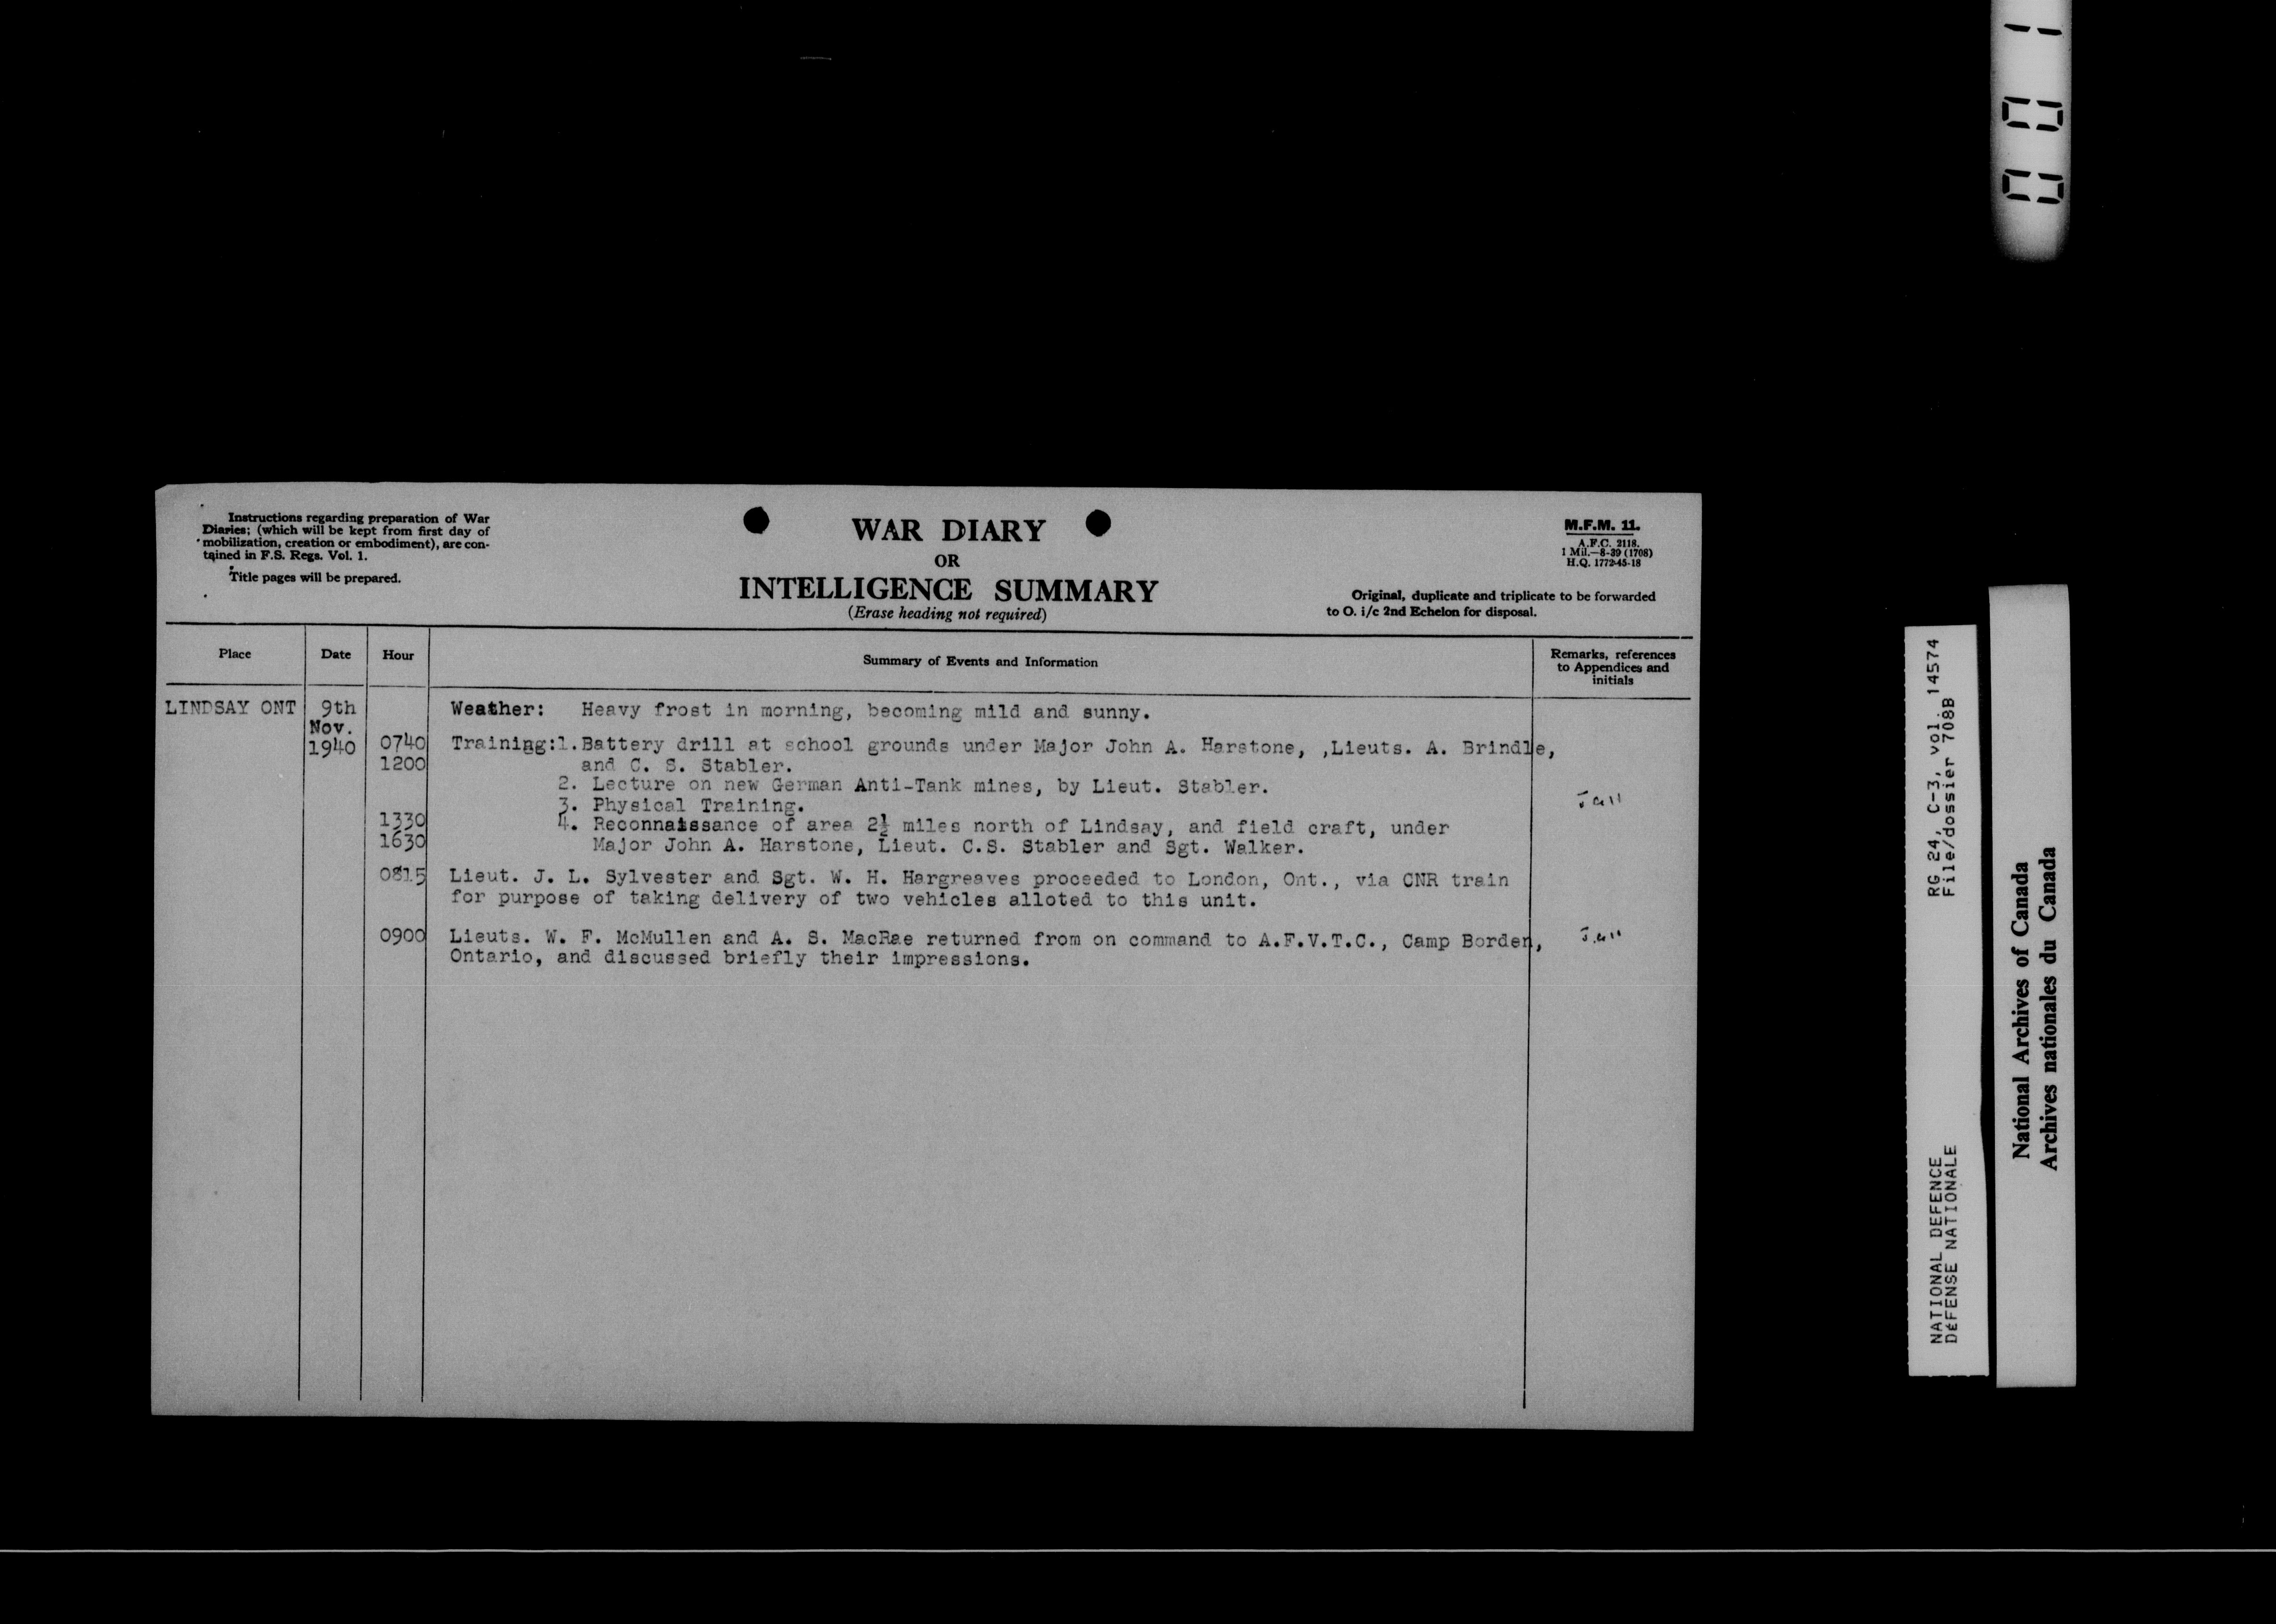 Instructions regarding preparation of War
Diaries; (which will be kept from first day of
mobilization, creation or embodiment), are con-
tained in F.S. Regs. Vol. 1.
Title pages will be prepared.
WAR DIARY
OR
INTELLIGENCE SUMMARY
(Erase heading not required)
M.F.M. 11.
A.F.C. 2118.
1 Mil.—8-39 (1708)
H.Q. 1772-45-18
Original, duplicate and triplicate to be forwarded
to O. i/c 2nd Echelon for disposal.
Place Date Hour Summary of Events and Information Remarks, references
to Appendices and
initials
LINDSAY ONT 9th Weather: Heavy frost in morning, becoming mild and sunny.
Nov.
1940 0740 Training:1.Battery drill at school grounds under Major John A. Harstone, ,Lieuts. A. Brindle,
1200 and C. S. Stabler.
2. Lecture on new German Anti-Tank mines, by Lieut. Stabler.
3. Physical Training.
1330 4. Reconnaissance of area 2½ miles north of Lindsay, and field craft, under
1630 Major John A. Harstone, Lieut. C.S. Stabler and Sgt. Walker.
0815 Lieut. J. L. Sylvester and Sgt. W. H. Hargreaves proceeded to London, Ont., via CNR train
for purpose of taking delivery of two vehicles alloted to this unit.
0900 Lieuts. W. F. McMullen and A. S. MacRae returned from on command to A.F.V.T.C., Camp Borden,
Ontario, and discussed briefly their impressions.
001
NATIONAL DEFENCE RG 24, C-3, vol. 14574
DÉFENSE NATIONALE File/dossier 708B
National Archives of Canada
Archives nationales du Canada